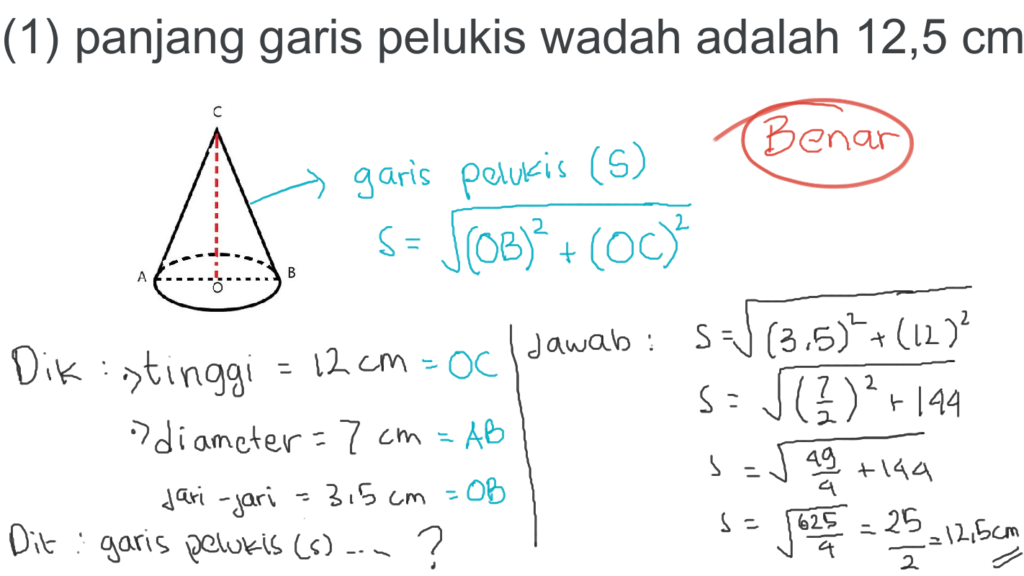 (1) panjang garis pelukis wadah adalah 12,5 cm
Benar
C
A
B
O
garis pelukis (S)
S = √(OB)² + (OC)²
Dik : → tinggi = 12 cm = OC
→ diameter = 7 cm = AB
Jari-jari = 3,5 cm = OB
Dit : garis pelukis (s) ... ?
Jawab :
S = √(3,5)² + (12)²
S = √(7/2)² + 144
S = √49/4 + 144
S = √625/4 = 25/2 = 12,5 cm